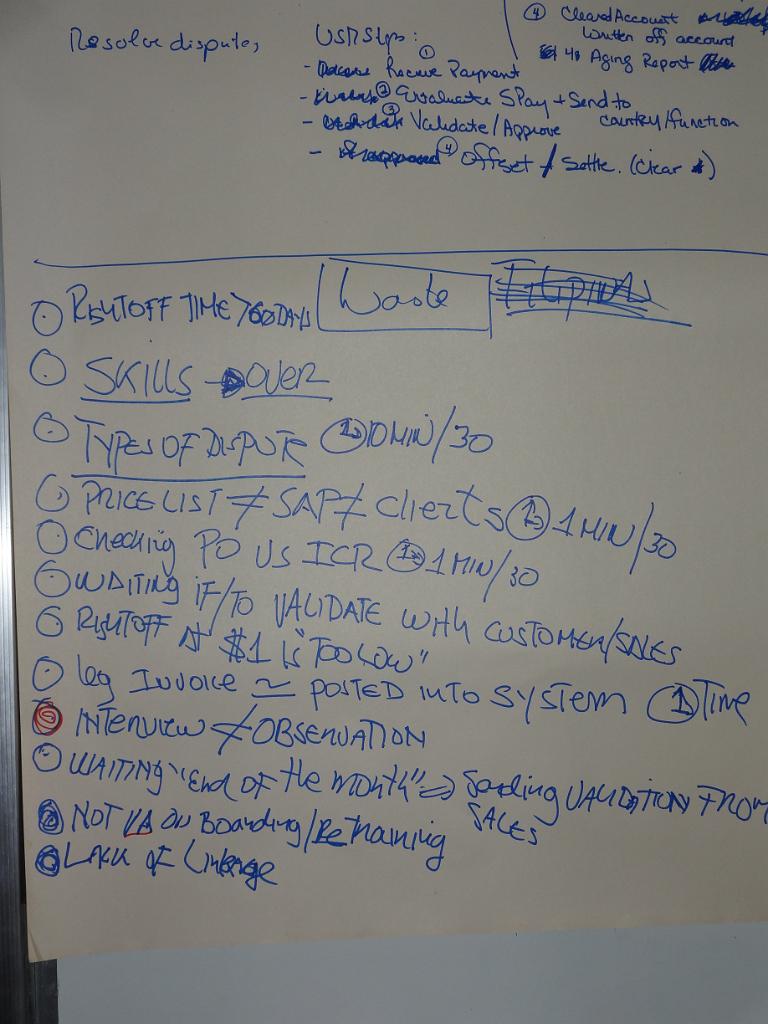 Resolve disputes
USM Steps:
④ Cleared Account
written off account
4. Aging Report
- ① Receive Payment
- ② Evaluate SPay + Send to country/function
- ③ Validate/Approve
- ④ Offset / Settle. (Clear )
Waste
RIGHTOFF TIME >60 DAYS
SKILLS → OVER
TYPES OF DISPUTE ① 10 MIN/30
PRICE LIST ≠ SAP ≠ Clients ① 1 MIN/30
Checking PO VS ICR ① 1 MIN/30
WAITING IF/TO VALIDATE WITH CUSTOMER/SALES
RIGHTOFF AT $1 is "TOO LOW"
Leg INVOICE ≃ POSTED INTO SYSTEM ① Time
INTERVIEW ≠ OBSERVATION
WAITING "End OF the MONTH" ⇒ Sending VALIDATION FROM SALES
NOT VA ON Boarding/Retraining
Lack of Linkage